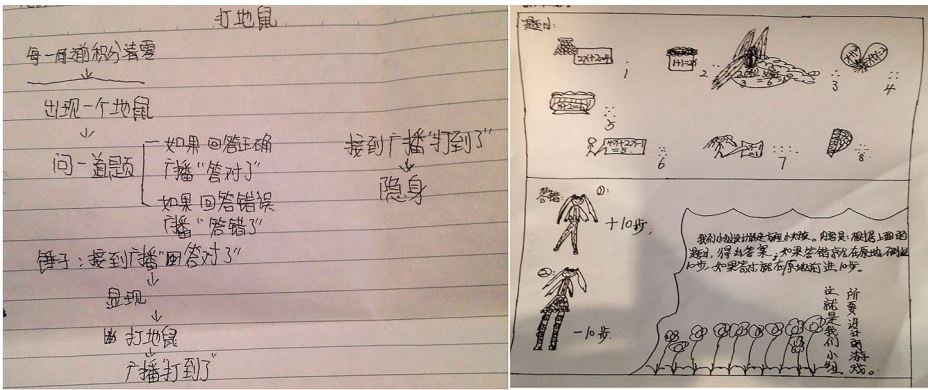 打地鼠
每一局前积分清零
出现一个地鼠
问一道题
如果回答正确
广播“答对了”
如果回答错误
广播“答错了”
接到广播“打到了”
隐身
锤子:接到广播“回答对了”
显现
打地鼠
广播“打到了”
题目:
2x+2=4
1
1+1=2x
2
3
4
5
6
7
8
答错:
①:
+10步;
②:
-10步.
我们小组设计的是方程小对换。内容是:根据上面的
题目,得出答案,如果答错就在原地倒退
10步,如果答对就在原地前进10步。
这就是我们小组
所要设计的游戏。